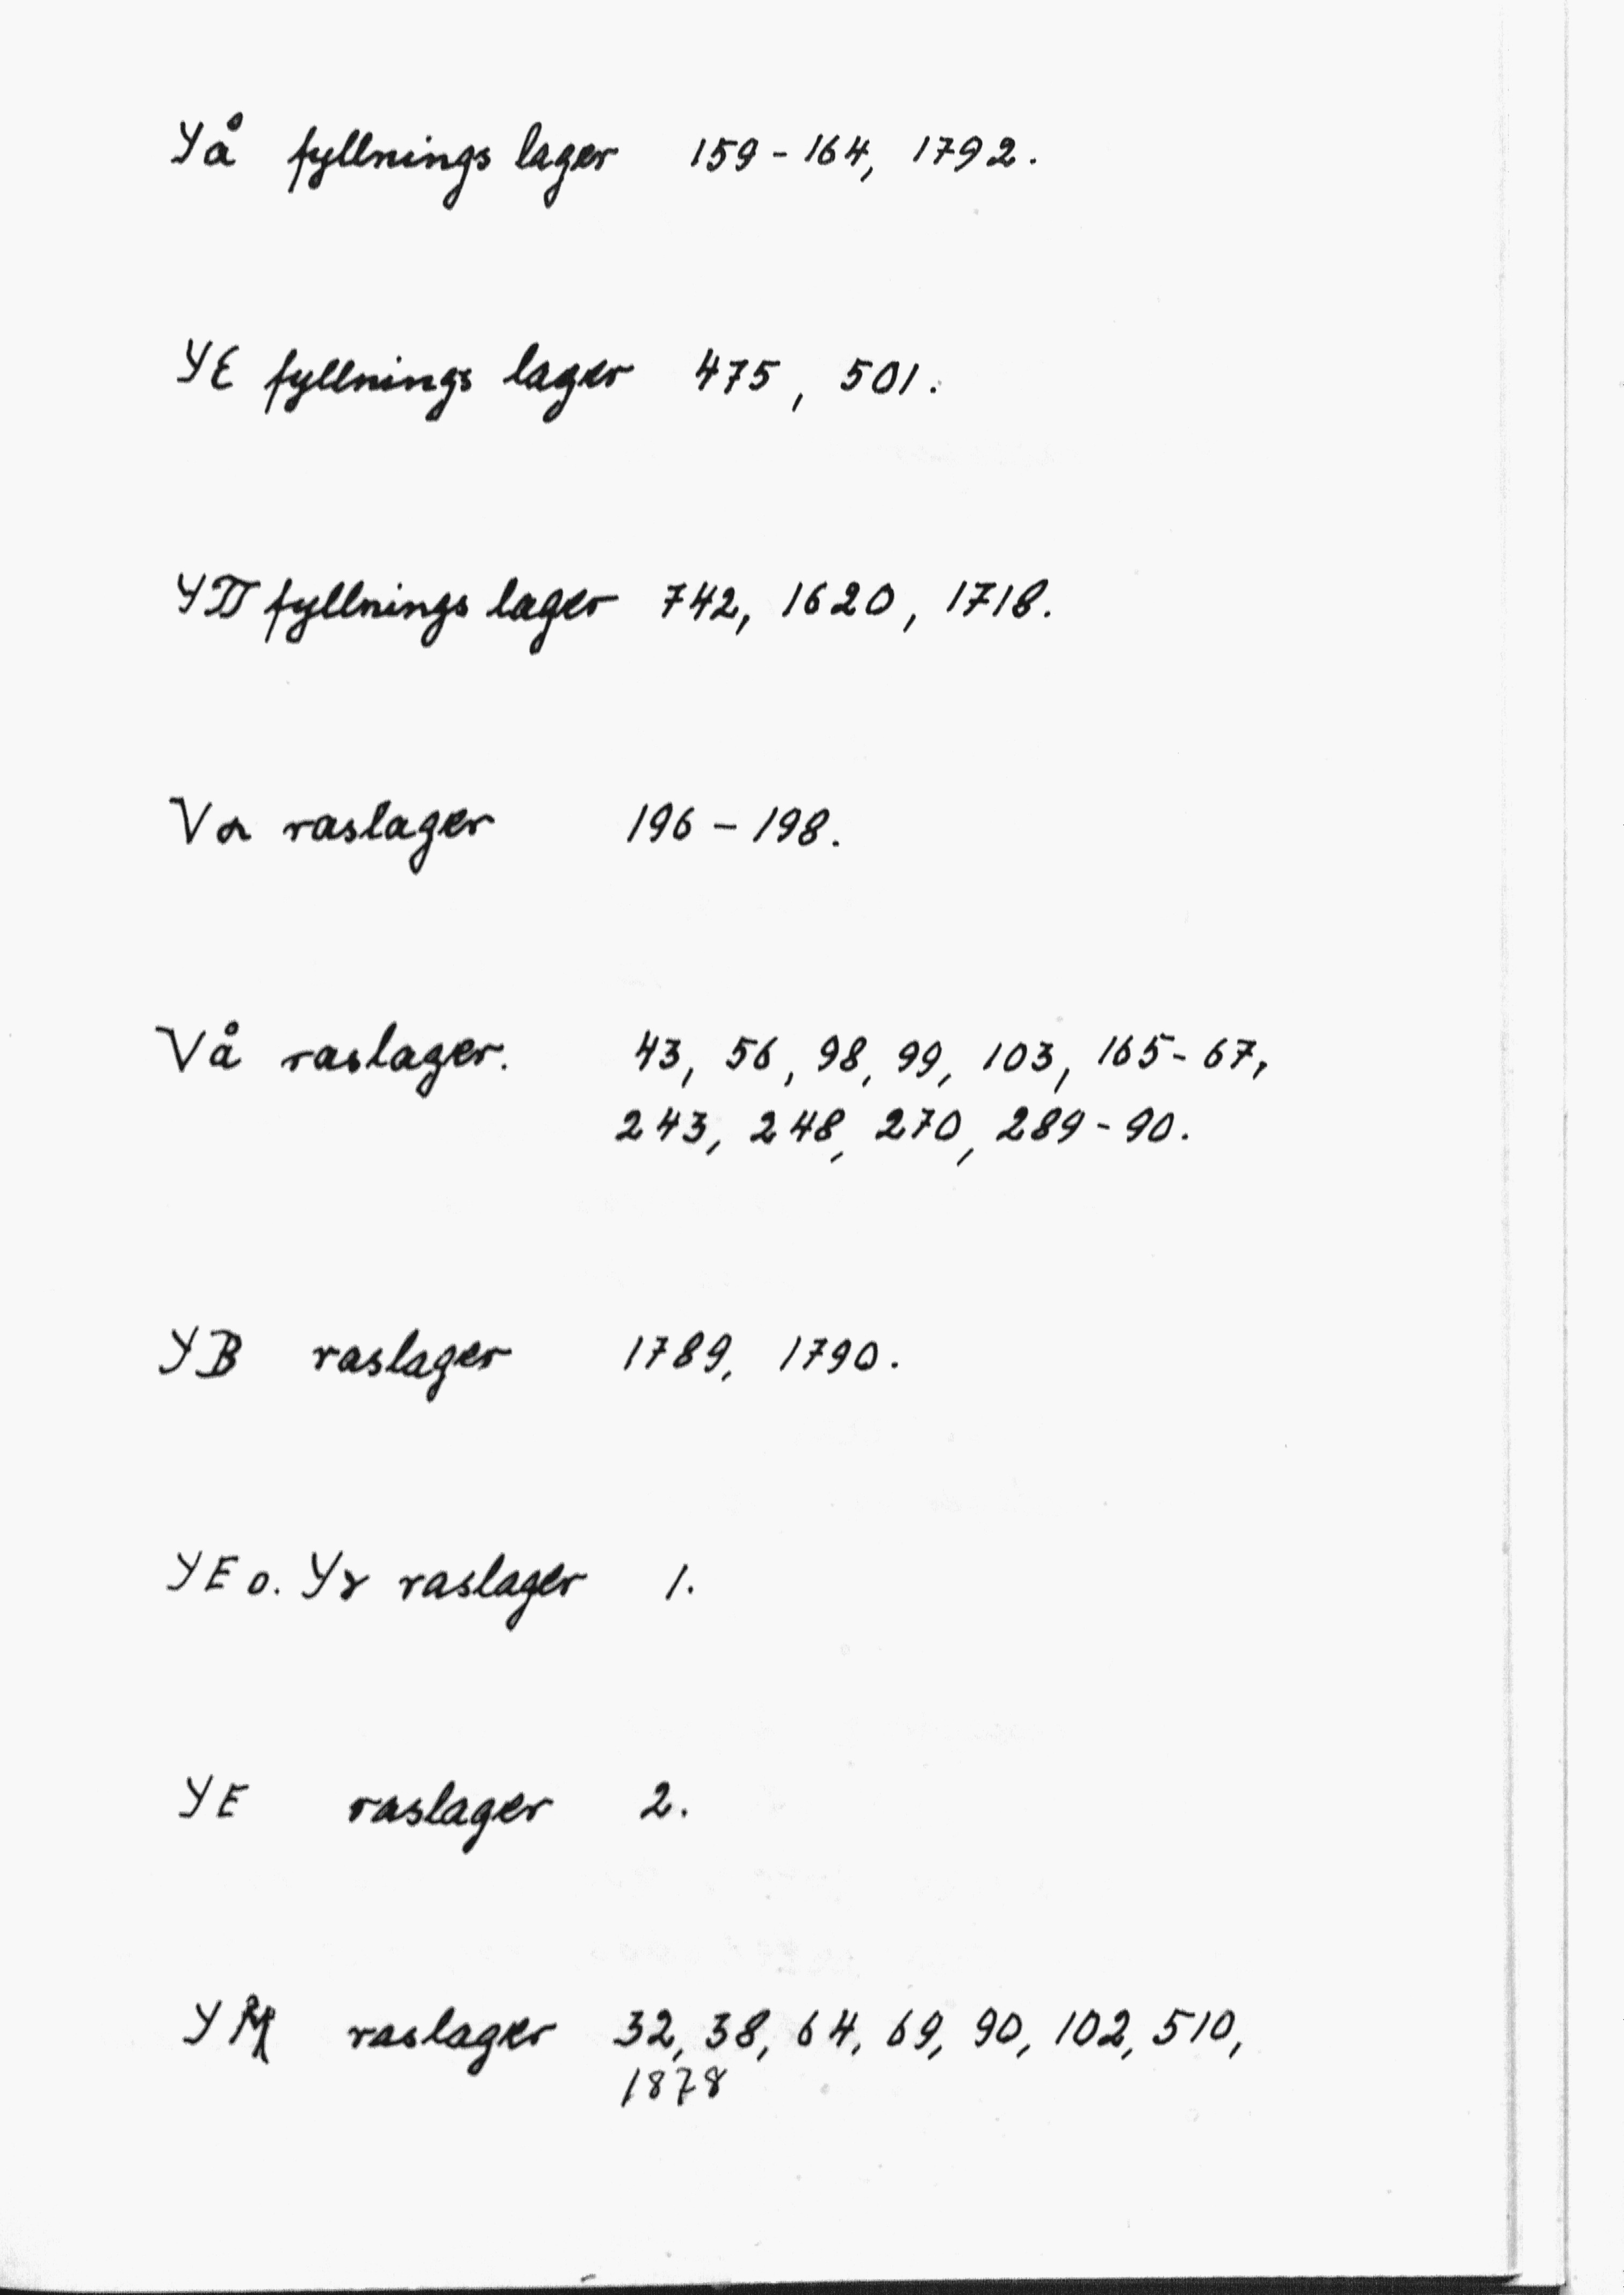 Yå fyllnings lager 159-164, 1792.
YE fyllnings lager 475, 501.
YΠ fyllnings lager 742, 1620, 1718.
Vα raslager 196-198.
Vå raslager. 43, 56, 98, 99, 103, 165-67,
243, 248, 270, 289-90.
YB raslager 1789, 1790.
YE o. Yɤ raslager 1.
YE raslager 2.
YM raslager 32, 38, 64, 69, 90, 102, 510,
1878